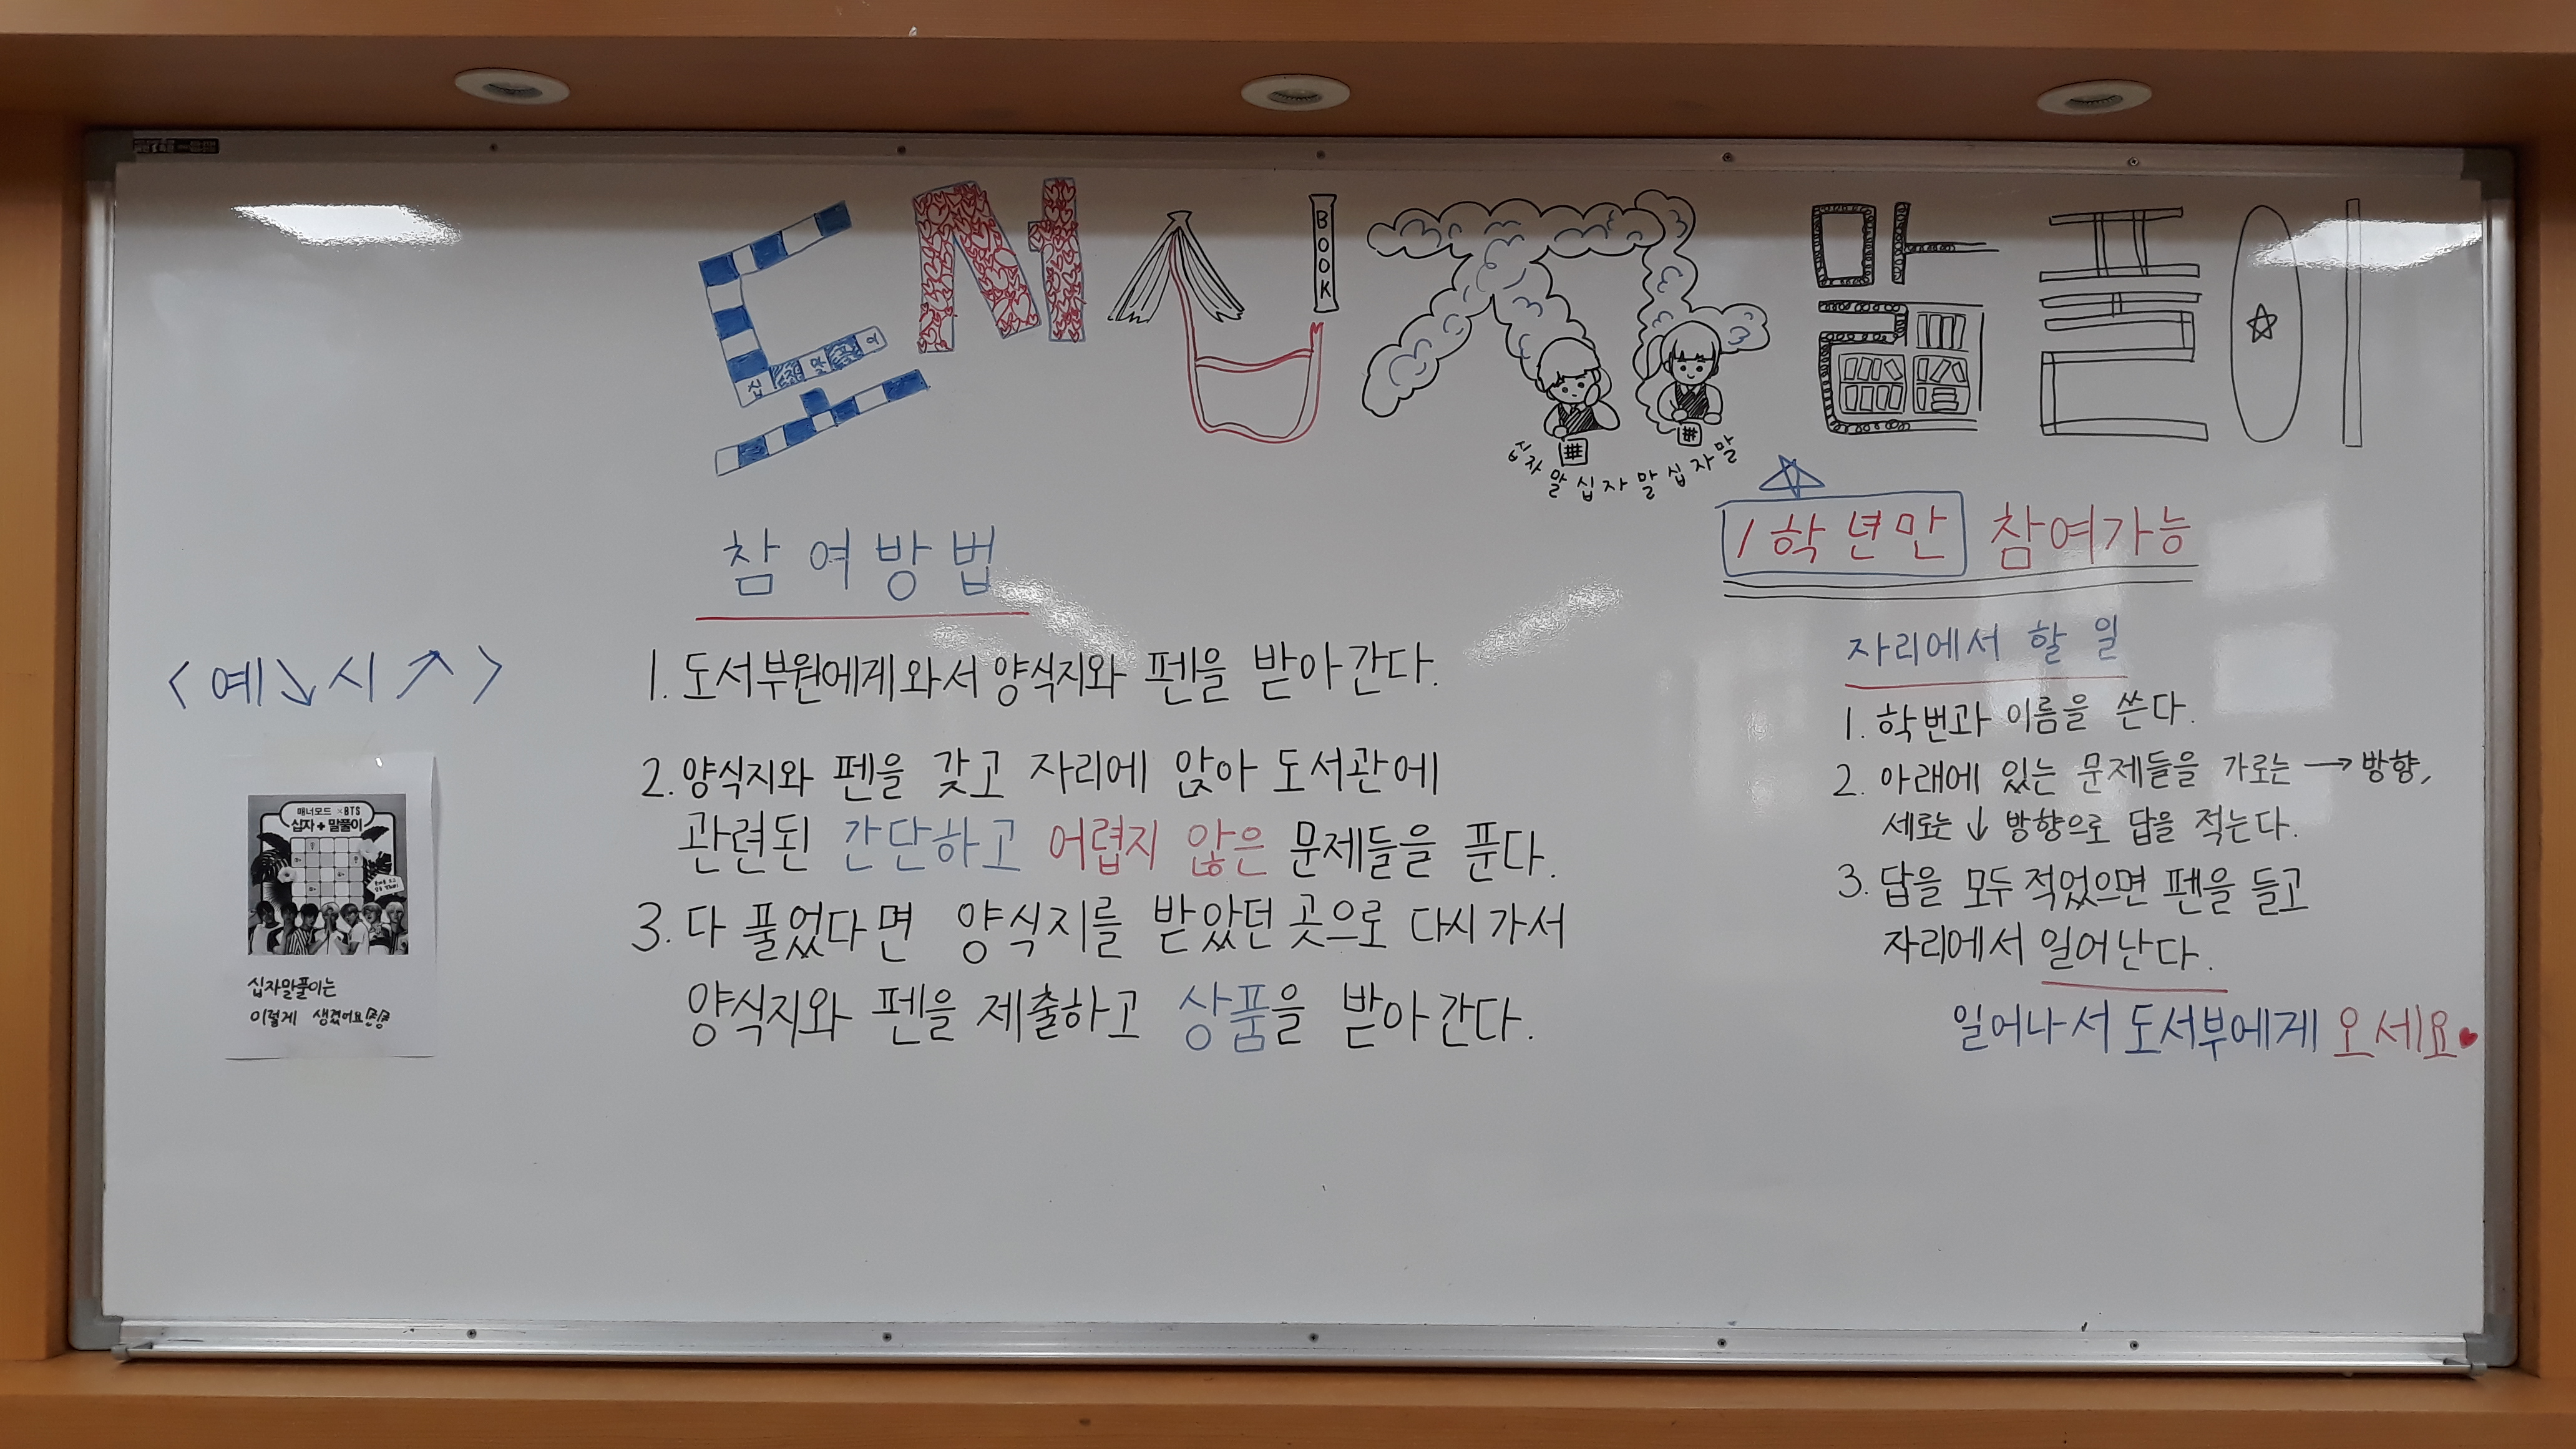 도서십자말풀이
BOOK
십자말풀이
십자말십자말십자말
참여방법
1학년만 참여가능
<예↘시↗>
1. 도서부원에게 와서 양식지와 펜을 받아간다.
2. 양식지와 펜을 갖고 자리에 앉아 도서관에
관련된 간단하고 어렵지 않은 문제들을 푼다.
3. 다 풀었다면 양식지를 받았던 곳으로 다시 가서
양식지와 펜을 제출하고 상품을 받아간다.
자리에서 할 일
1. 학번과 이름을 쓴다.
2. 아래에 있는 문제들을 가로는 → 방향,
세로는 ↓ 방향으로 답을 적는다.
3. 답을 모두 적었으면 펜을 들고
자리에서 일어난다.
일어나서 도서부에게 오세요♥
매너모드 ×BTS
십자+말풀이
십자말풀이는
이렇게 생겼어요